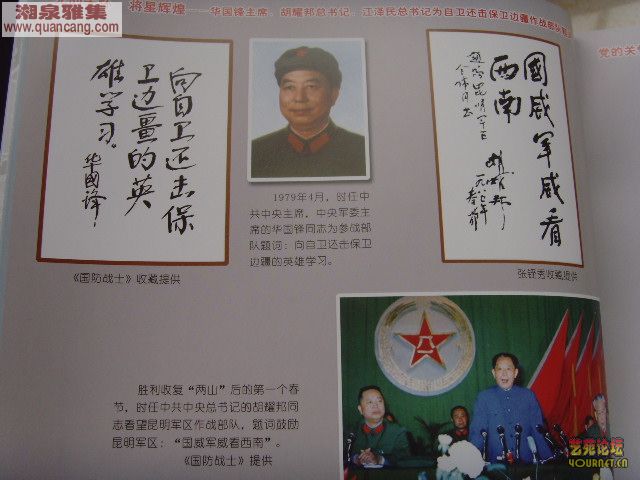 湘泉雅集
www.quancang.com
将星辉煌——华国锋主席、胡耀邦总书记、江泽民总书记为自卫还击保卫边疆作战部队题
党的关
向自卫还击保
卫边畺的英
雄学习。
华国锋
1979年4月，时任中
共中央主席，中央军委主
席的华国锋同志为参战部
队题词：向自卫还击保卫
边疆的英雄学习。
國威军威看
西南
胡耀邦
一九八七年
春节
《国防战士》收藏提供
张铚秀收藏提供
胜利收复“两山”后的第一个春
节，时任中共中央总书记的胡耀邦同
志看望昆明军区作战部队，题词鼓励
昆明军区：“国威军威看西南”。
《国防战士》提供
八一
艺苑论坛
YOURNET.CN